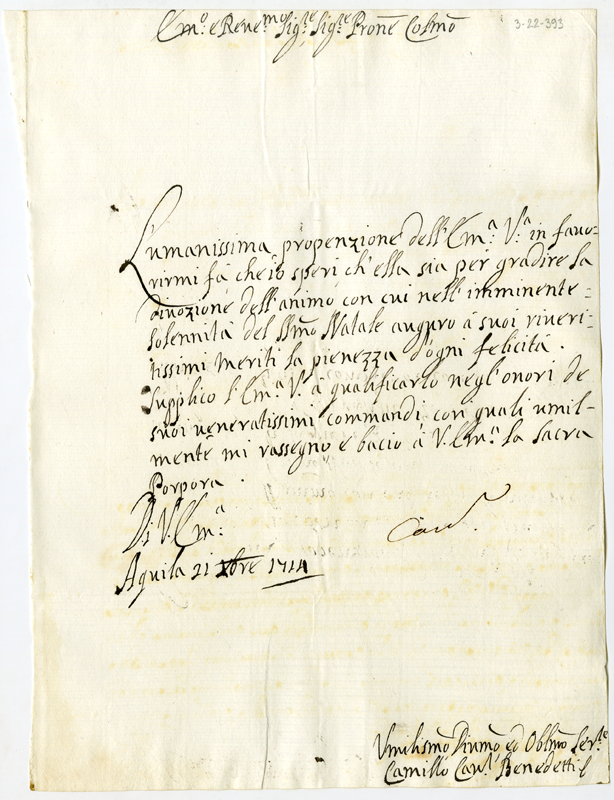 Em.º e Reue.mo Sig.re Sig.re Prone Colmo
3-22-393
L'umanissima propenzione dell'Em.ª V.ª in fauo-
rirmi fà che iò speri ch'ella sia per gradire la
diuozione dell'animo con cui nell'imminente=
solennità del SSmo Natale auguro à suoi riueri=
tissimi meriti la pienezza d'ogni felicità.
Supplico l'Em.ª V.ª à qualificarlo negl'onori de
suoi veneratissimi commandi, con quali umil-
mente mi rassegno e bacio à V. Em.ª la Sacra
Porpora.
Di V. Em.ª
Card.
Aquila 21 Xbre 1714
Vmilismo Diumo ed Oblmo Ser.re
Camillo Cau.r Benedetti